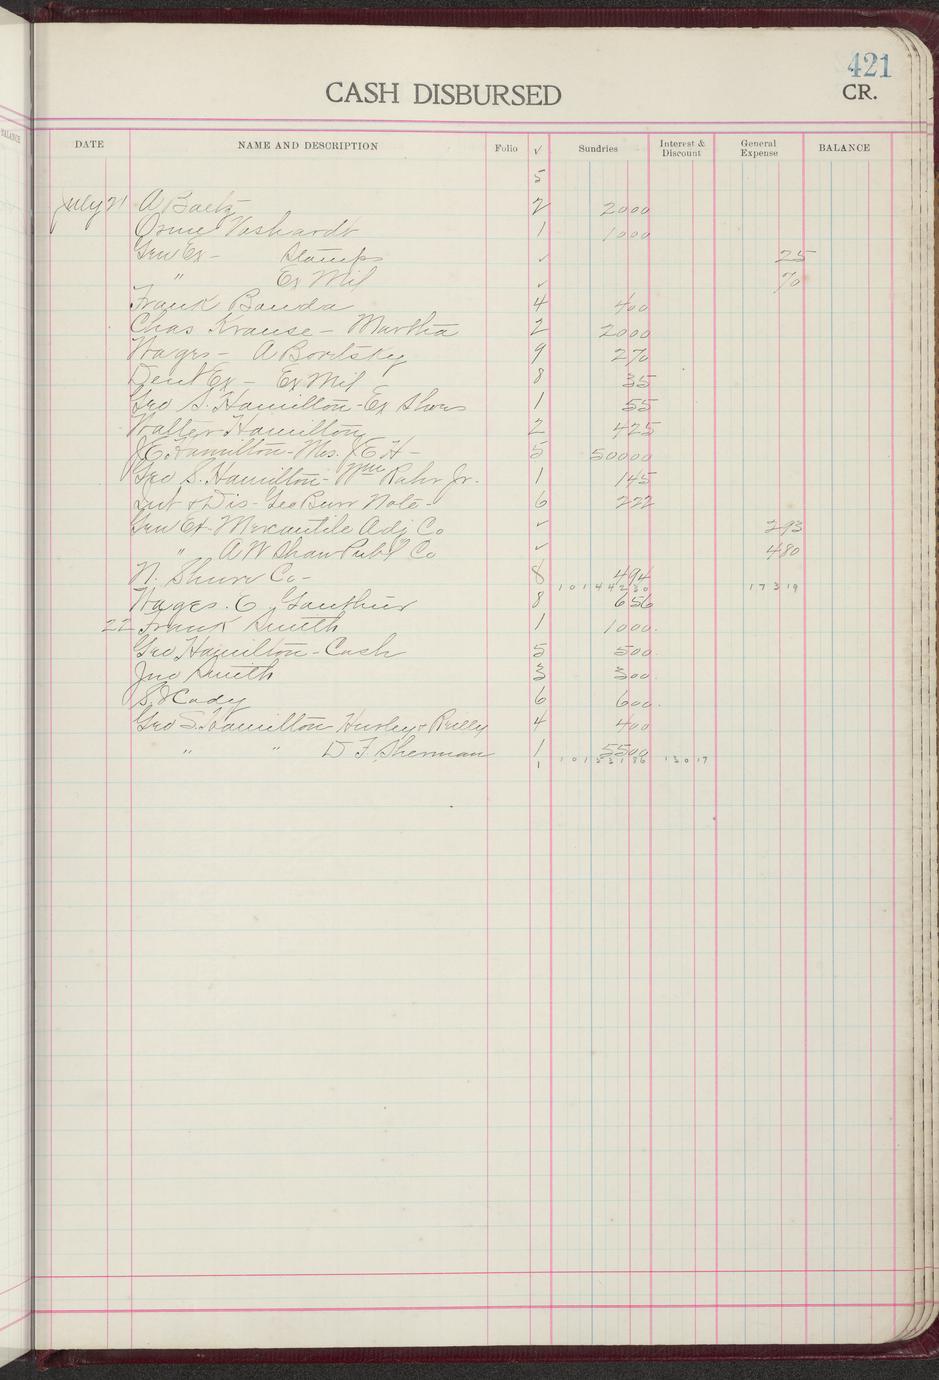 421
CASH DISBURSED CR.
BALANCE
DATE NAME AND DESCRIPTION Folio √ Sundries Interest & Discount General Expense BALANCE
5
July 21 A Baetz 2 2000
Orme 1 1000
Gen Ex - Stamps √ 25
" Ex Mil √ 70
Frank Banda 4 400
Chas Krause - Martha 2 2000
Wages - A Boretsky 9 270
Deut Ex - Ex Mil 8 35
Geo S. Hamilton - Ex Shoes 1 55
Walter Hamilton 2 425
J E Hamilton - Mrs. J E H - 5 50000
Geo S. Hamilton - Wm Rahr Jr. 1 145
Int & Dis - Geo Burr Note - 6 222
Gen Ex - Mercantile Adj Co √ 293
" A W Shaw Publ Co √ 480
N. Shure Co - 8 494
10144230 17319
Wages. E Gauthier 8 656
22 Frank Smith 1 1000.
Geo Hamilton - Cash 5 500.
Jno Smith 3 300.
S. Cady 6 600.
Geo S. Hamilton Hurley & Reilly 4 400
" " D F. Sherman 1 5500
1 10153186 13017